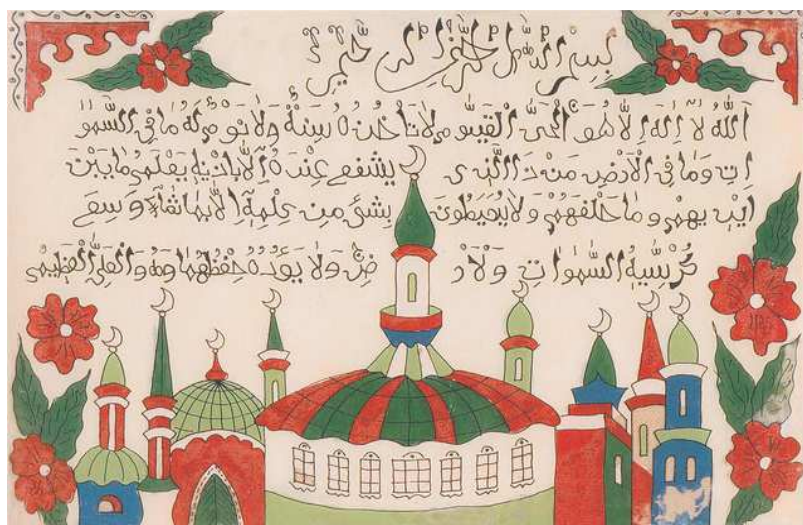 بسم الله الرحمن الرحيم
اَللّٰهُ لَا اِلٰهَ اِلَّا هُوَ الْحَىُّ الْقَيُّو مُ لَا تَأْخُذُهُ سِنَةٌ وَلَا نَوْ مٌ لَهُ مَا فِى السَّمٰوا
اتِ وَمَا فِى الْاَرْضِ مَنْ ذَ االَّذِى يشفع عِنْدَهُ اِلَّا بِاِذْنِهِ يَعْلَمُ مَا بَيْنَ
ايْدِ يهِمْ وَمَا خَلْفَهُمْ وَلَا يُحِيطُونَ بِشَىْءٍ مِنْ عِلْمِهِ اِلَّا بِمَا شَاءَ وَسِعَ
كُرْسِيُّهُ السَّمٰوَاتِ وَلْاَرْ ضَ وَلَا يَؤُدُهُ حِفْظُهُمَا وَهُوَ الْعَلِىُّ الْعَظِيمُ